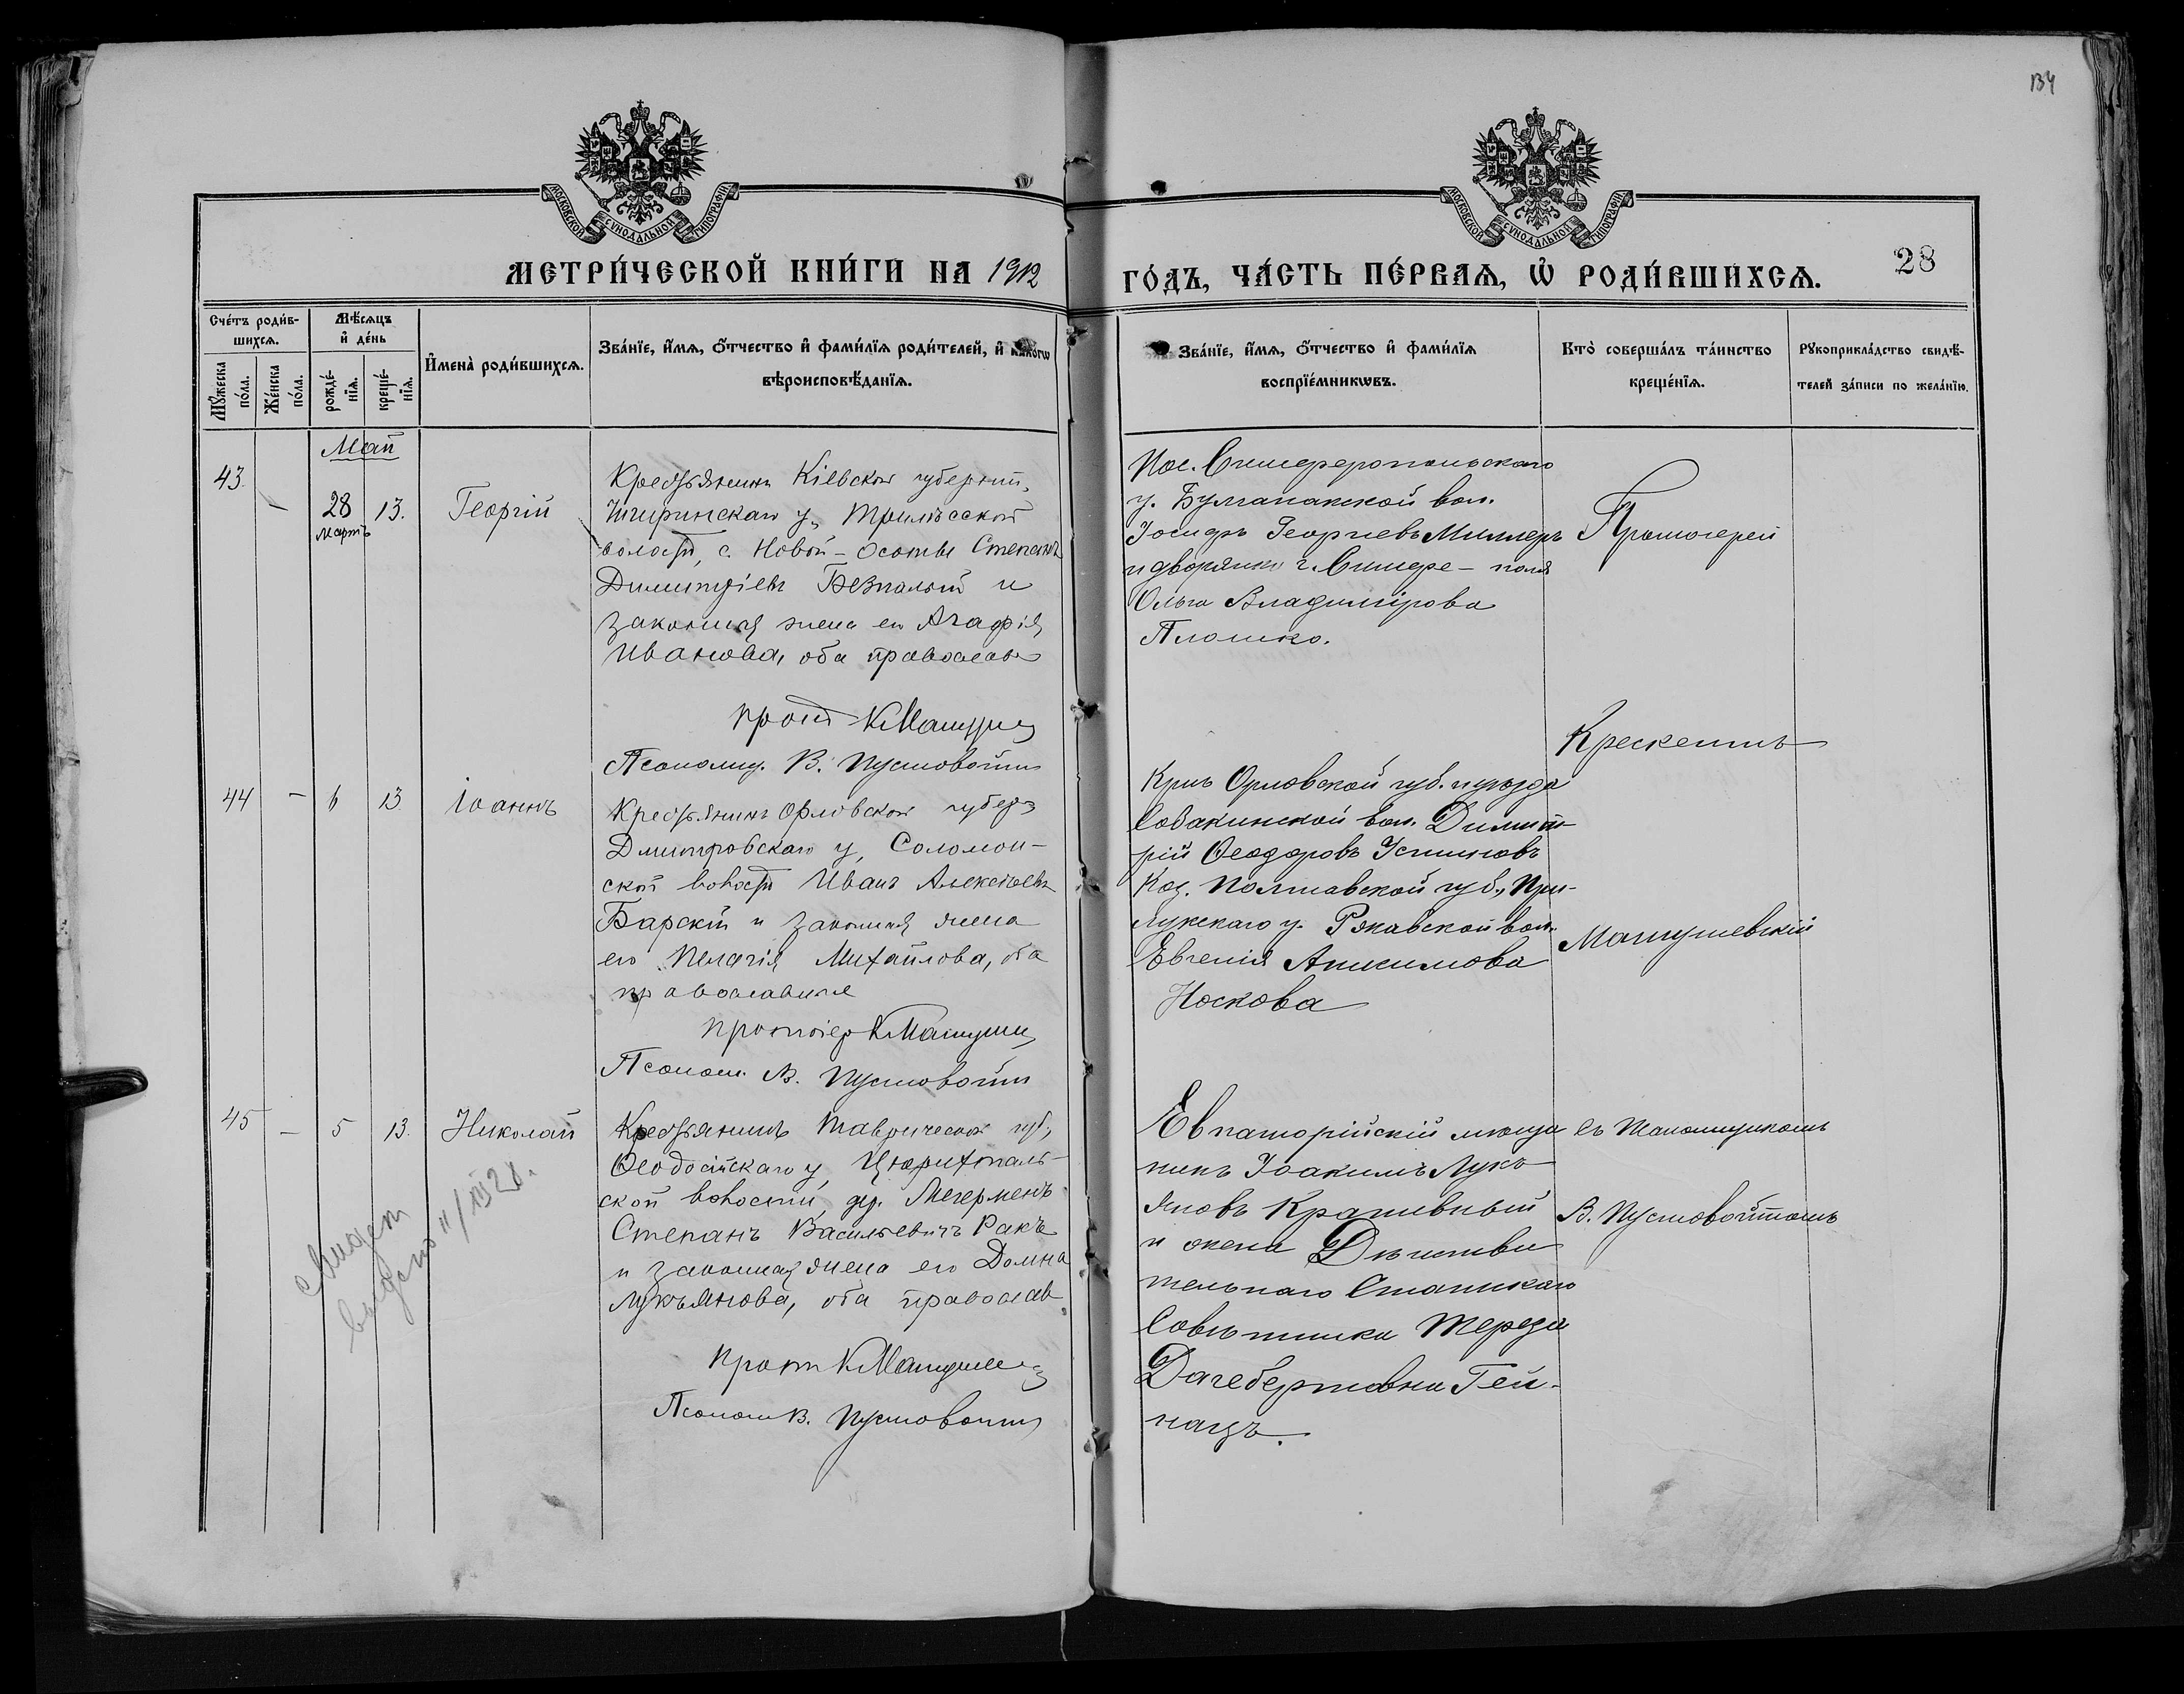 134
МОСКОВСКОЙ СѴНОДАЛЬНОЙ ТИПОГРАФІИ
МОСКОВСКОЙ СѴНОДАЛЬНОЙ ТИПОГРАФІИ
МЕТРИ́ЧЕСКОЙ КНИ́ГИ НА 1912
ГО́ДЪ, ЧА́СТЬ ПЕ́РВАЯ, Ѡ РОДИ́ВШИХСЯ.
28
Сче́тъ роди́в-
шихся.
Мꙋ́жеска
по́ла.
Же́нска
по́ла.
Мѣ́сяцъ
и де́нь
рожде́-
нія.
креще́-
нія.
Имена̀ роди́вшихся.
Зва́ніе, и́мя, о́тчество и фами́лія роди́телей, и како́гѡ
вѣроисповѣ́данія.
Зва́ніе, и́мя, о́тчество и фами́лія
воспріе́мникѡвъ.
Кто̀ соверша́лъ та́инство
креще́нія.
Рꙋкоприкла́дство свидѣ́-
телей за́писи по жела́нію.
Май
43.
–
28
мартъ
13.
Георгій
Крестьянинъ Кіевской губерніи,
Чигиринскаго у, Трилѣсской
волости, с. Новой-Осоты Степанъ
Димитріевъ Безпалый и
законная жена его Агафія
Иванова, оба православн
прот К Матуш
Псаломщ. В. Пустовойтъ
Пос. Симферопольскаго
у. Булганакской вол.
Іосифъ Георгіевъ Миллеръ
и дворянка г. Симфе-поля
Ольга Владимірова
Плошко.
Протоіерей
Крескентъ
44
–
6
13.
Іоаннъ
Крестьянинъ Орловской губер
Дмитровскаго у, Соломин-
ской волости Иванъ Алексѣевъ
Барскій и законная жена
его Пелагія Михайлова, оба
православные
протоіер К Матуш
Псалом. В. Пустовойтъ
Крнъ Орловской губ. и уѣзда
Собакинской вол. Димит-
рій Ѳеодоровъ Устиновъ
Каз. Полтавской губ., При-
лукскаго у. Ряжавской вол.
Евгенія Анисимова
Носкова
Матушевскій
45
–
5
13.
Николай
Крестьянинъ Таврической губ,
Ѳеодосійскаго у, Цюрихталь-
ской волости, дер. Мегерменъ
Степанъ Васильевичъ Ракъ
и законная жена его Домна
Лукьянова, оба православ.
прот К Матуше
Псалом В. Пустовойтъ
Евпаторійскій мѣща
нинъ Іоакимъ Лукъ
яновъ Крапивный
и жена Дѣйстви
тельнаго Статскаго
Совѣтника Тереза
Дагебертовна Гей-
нацъ.
съ Псаломщикомъ
В. Пустовойтомъ
выдано 11/III 26.